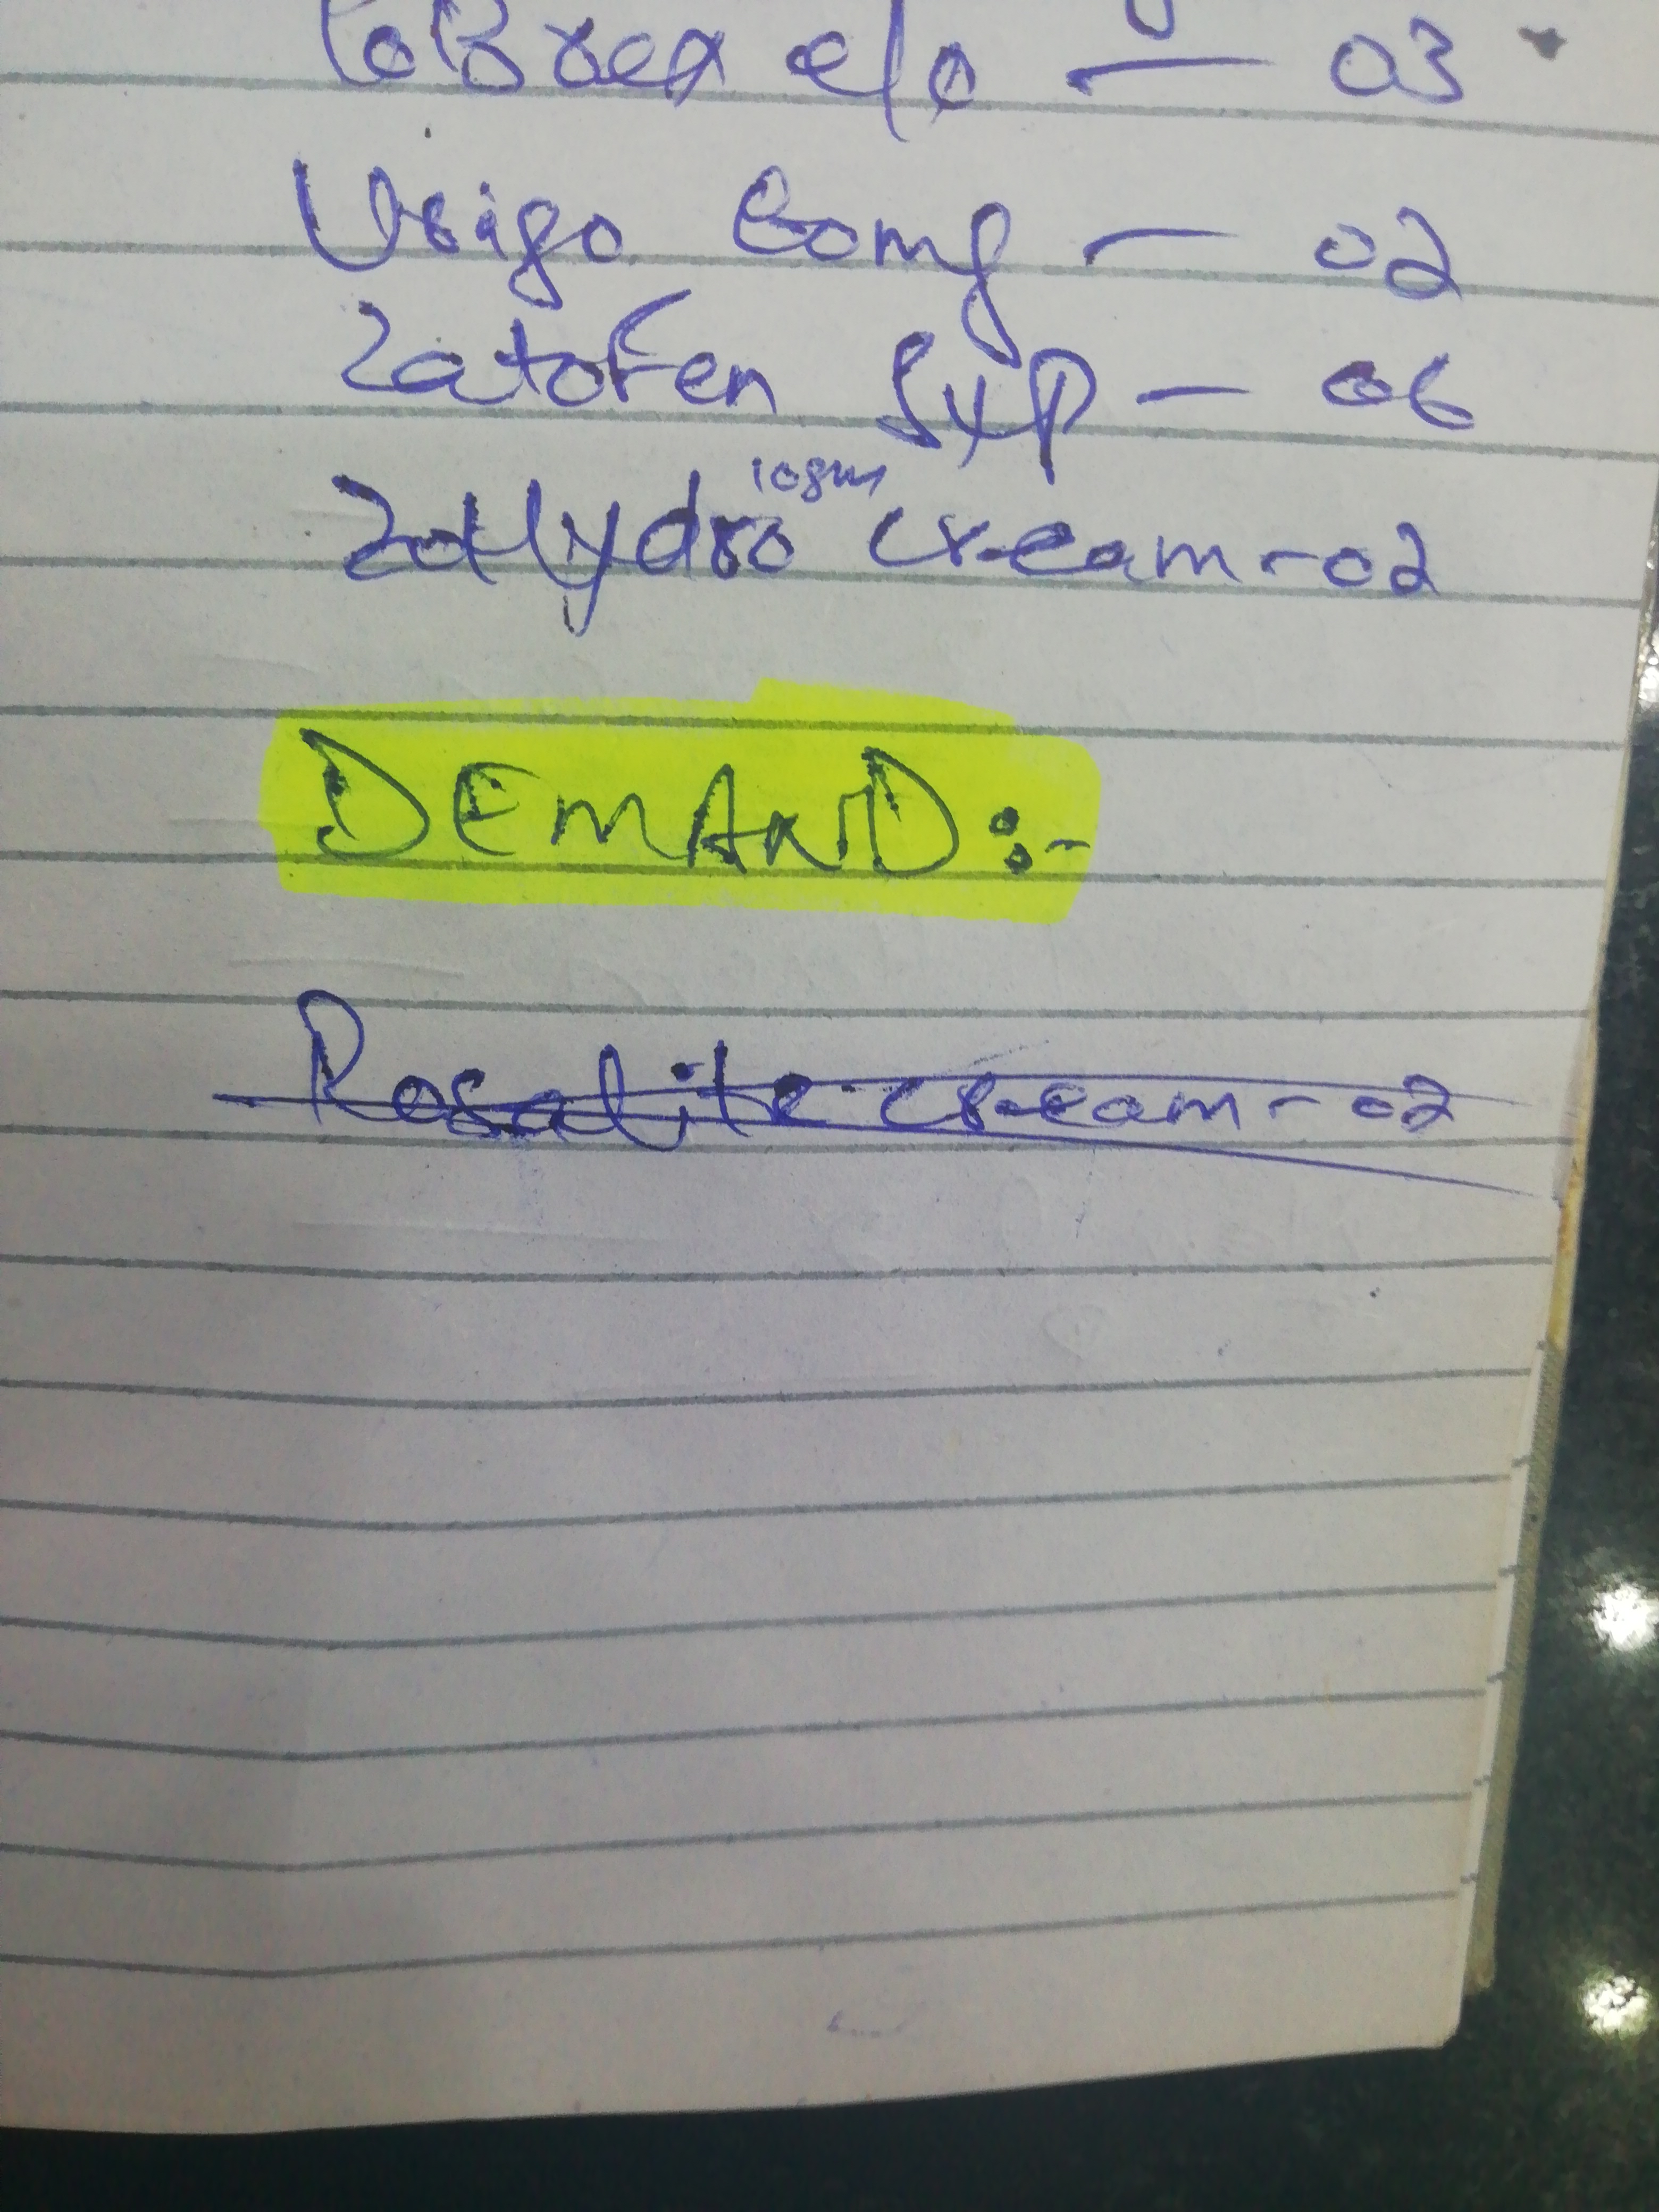 ToBrex e/o — 03
Urigo 80mg — 02
Zatofen Syp — 06
ZolHydro 10gm cream - 02
DEMAND :-
Rosalite cream - 02